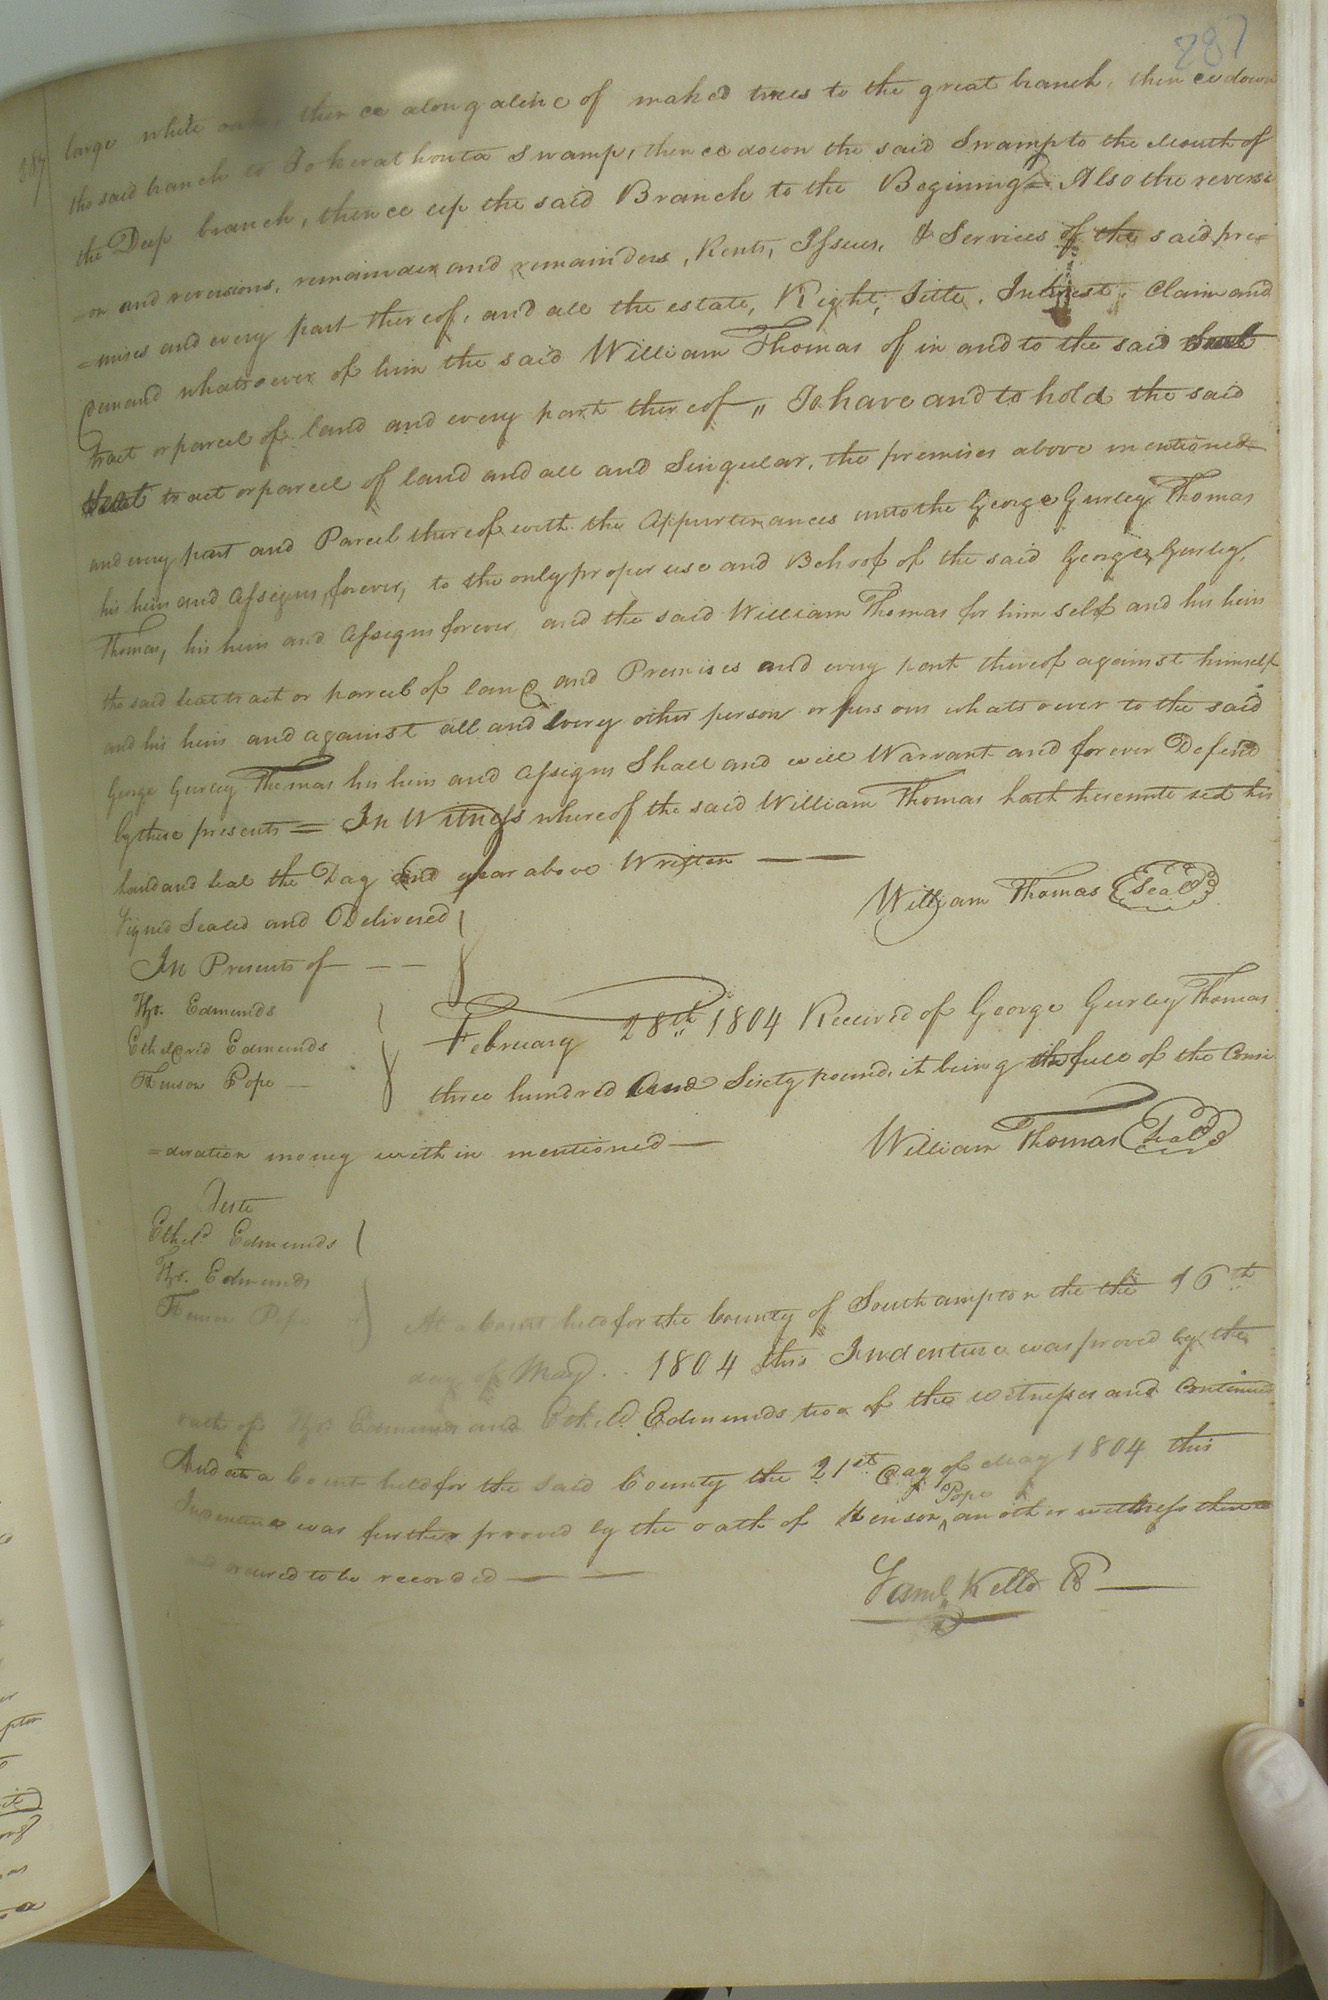 287
287
large white oak, thence along a line of maked trees to the great branch, thence down
the said branch to Tokerathonta Swamp, thence down the said Swamp to the Mouth of
the Deep branch, thence up the said Branch to the Beginning = Also the reversi
=on and reversions, remainder and remainders, Rents, Issues, & Services of the said pre=
=mises and every part thereof, and all the estate, Right, Title, Interest, Claim and
Demand whatsoever of him the said William Thomas of in and to the said
tract or parcel of land and every part thereof,, To have and to hold the said
tract or parcel of land and all and Singular, the premises above mentioned
and every part and Parcel thereof with the Appurtenances unto the George Gurley Thomas
his heirs and Assigns, forever, to the only proper use and Behoof of the said George Gurley
Thomas, his heirs and Assigns forever and the said William Thomas for himself and his heirs
the said tract or parcel of land and Premises and every part thereof against himself
and his heirs and against all and Every other person or persons whatsoever to the said
George Gurley Thomas his heirs and Assigns Shall and will Warrant and forever Defend
by these presents = In Witness whereof the said William Thomas hath hereunto set his
hand and seal the Day and year above Written
William Thomas Seal
Signed Sealed and Delivered
In Presents of
Ths. Edmunds
Ethelred Edmunds
Henson Pope
February 28th 1804 Received of George Gurley Thomas
three hundred and Sixty pound, it being the full of the Consi
=deration money within mentioned
William Thomas Seal
Teste
Etheld Edmunds
Ths. Edmunds
Henson Pope
At a Court held for the County of Southampton the the 16th
day of May 1804 this Indenture was proved by the
oath of Ths. Edmunds and Etheld Edmunds two of the witnesses and Continued
And at a Court held for the said County the 21st day of May 1804 this
Indenture was further proved by the oath of Henson Pope another witness thereto
and ordered to be recorded
Saml Kello C